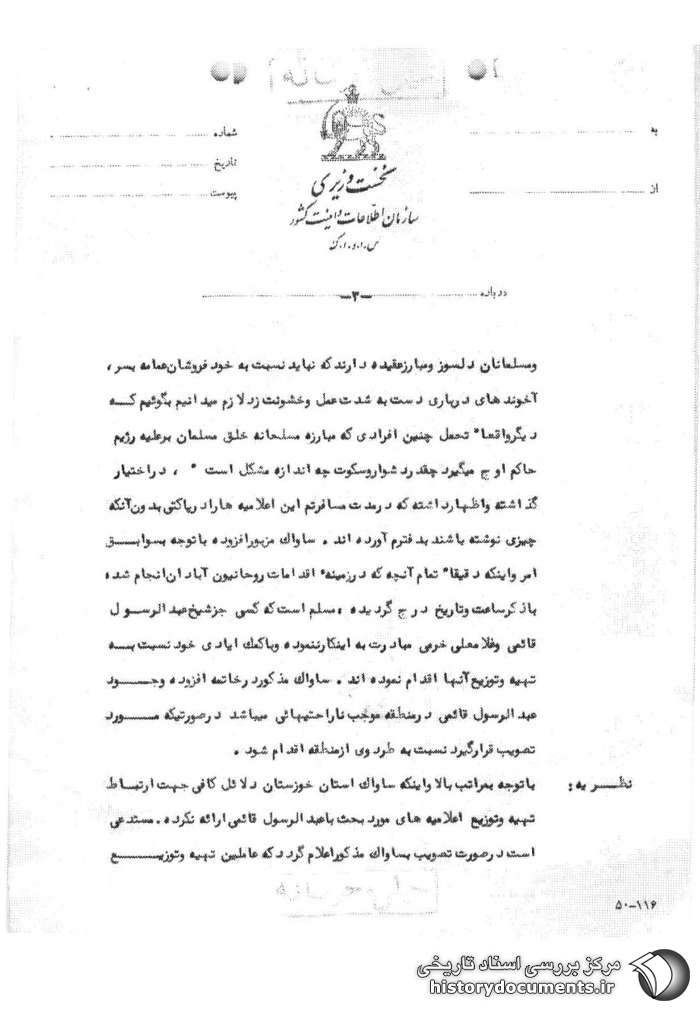 به
از
شماره
تاریخ
پیوست
نخست وزیری
سازمان اطلاعات و امنیت کشور
س.ا.و.ا.ک
درباره
-۳-
ومسلمانان دلسوز ومبارزعقیده دارندکه نباید نسبت به خود فروشان عمامه بسر،
آخوند های درباری دست به شدت عمل وخشونت زدلازم میدانیم بگوئیم کـه
دیگرواقعا" تحمل چنین افرادی که مبارزه مسلحانه خلق مسلمان برعلیه رژیم
حاکم اوج میگیرد چقدر دشواروسکوت چه اندازه مشکل است " ، دراختیار
گذاشته واظهارداشته که درمدت مسافرتم این اعلامیه هارادرپاکتی بدون آنکه
چیزی نوشته باشند بدفترم آورده اند . ساواک مزبورافزوده باتوجه بسوابــق
امر واینکه دقیقا" تمام آنچه که درزمینه اقدامات روحانیون آبادان انجام شده
باذکرساعت وتاریخ درج گردیده ، مسلم است که کسی جزشیخ عبدالرسـول
قائمی وغلامعلی خرمی مبادرت به اینکارننموده وباکمک ایادی خود نسبت بـه
تهیه وتوزیع آنها اقدام نموده اند . ساواک مذکوردرخاتمه افزوده وجــود
عبدالرسول قائمی درمنطقه موجب ناراحتیهائی میباشد درصورتیکه مــورد
تصویب قرارگیرد نسبت به طرد وی ازمنطقه اقدام شود .
نظــر یه : باتوجه بمراتب بالا واینکه ساواک استان خوزستان دلائل کافی جهت ارتبــاط
تهیه وتوزیع اعلامیه های مورد بحث باعبدالرسول قائمی ارائه نکرده . مستدعی
است درصورت تصویب بساواک مذکوراعلام گردد که عاملین تهیه وتوزیـــع
۵۰-۱۱۶
مرکز بررسی اسناد تاریخی
historydocuments.ir